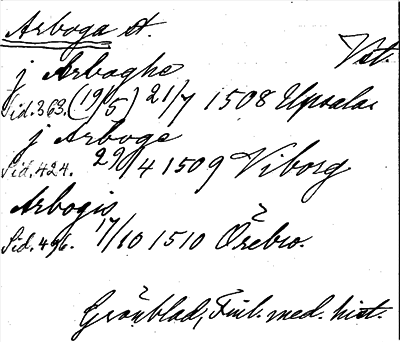 Arboga st.
Vst.
j Arboghe
Sid. 363. (19/5) 21/7 1508 Upsala.
j Arboge
Sid. 424. 29/4 1509 Viborg
Arbogis
Sid. 496. 17/10 1510 Örebro.
Grönblad, Finl. med. hist.